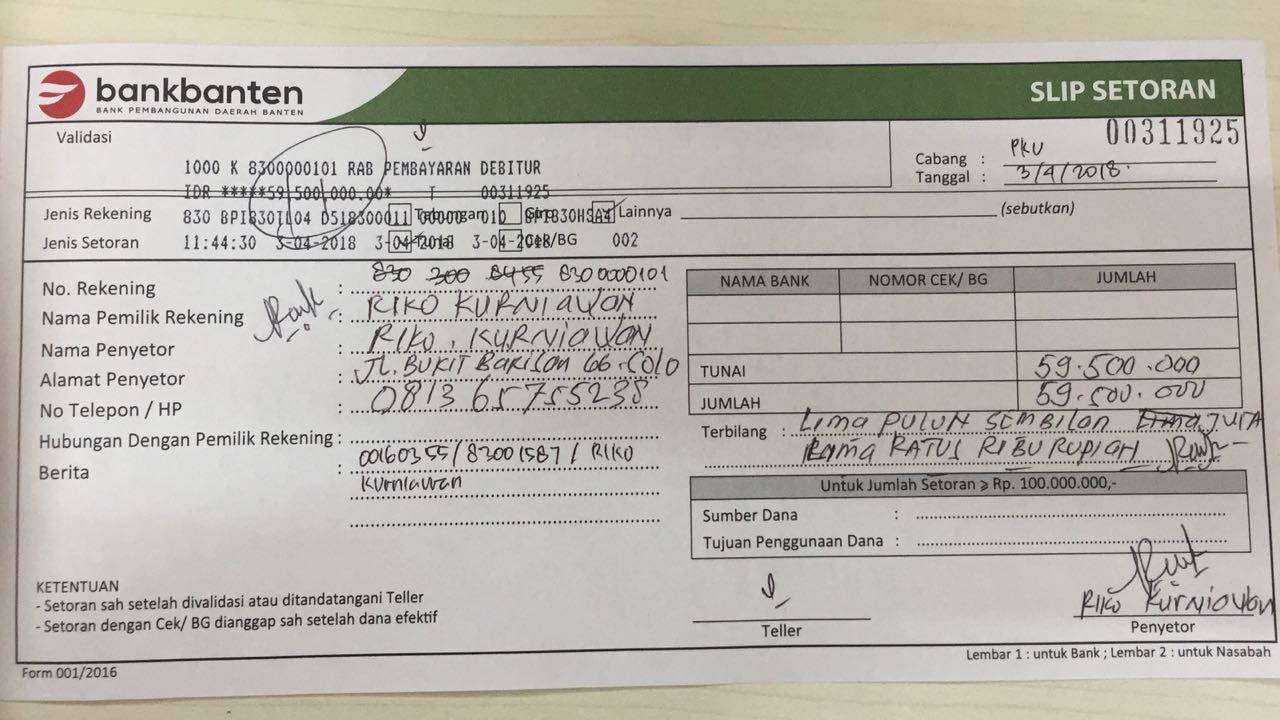 bankbanten
BANK PEMBANGUNAN DAERAH BANTEN
SLIP SETORAN
00311925
Validasi
Cabang : PKU
Tanggal : 3/4/2018
1000 K 8300000101 RAB PEMBAYARAN DEBITUR
IDR *****59,500,000.00* T 00311925
Jenis Rekening Tabungan Giro Lainnya (sebutkan)
830 BPI830TL04 D518300011 00000 010 BPI830HSA4
Jenis Setoran Tunai Cek/BG
11:44:30 3-04-2018 3-04-2018 3-04-2018 002
No. Rekening : 830 300 8455 8300000101
Nama Pemilik Rekening : RIKO KURNIAWAN
Nama Penyetor : RIKO . KURNIAWAN
Alamat Penyetor : JL. BUKIT BARISAN 66
No Telepon / HP : 0813 65755238
Hubungan Dengan Pemilik Rekening :
Berita : 00160355/83001587/ RIKO
Kurniawan
NAMA BANK NOMOR CEK/ BG JUMLAH
TUNAI 59.500.000
JUMLAH 59.500.000
Terbilang : Lima PULUH SEMBILAN Lima JUTA
Lima RATUS RIBU RUPIAH
Untuk Jumlah Setoran ⩾ Rp. 100.000.000,-
Sumber Dana :
Tujuan Penggunaan Dana :
KETENTUAN
- Setoran sah setelah divalidasi atau ditandatangani Teller
- Setoran dengan Cek/ BG dianggap sah setelah dana efektif
Teller
RIKO KURNIAWAN
Penyetor
Form 001/2016
Lembar 1 : untuk Bank ; Lembar 2 : untuk Nasabah